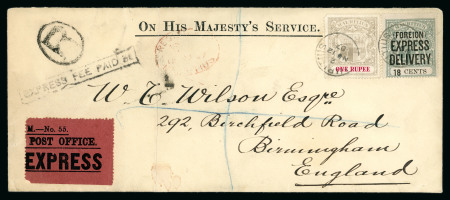 On His Majesty's Service.
R
EXPRESS FEE PAID
ONE RUPEE
FOREIGN
EXPRESS
DELIVERY
18 CENTS
W. T. Wilson Esqre
292, Birchfield Road
Birmingham
England
M.—No. 55.
POST OFFICE.
EXPRESS